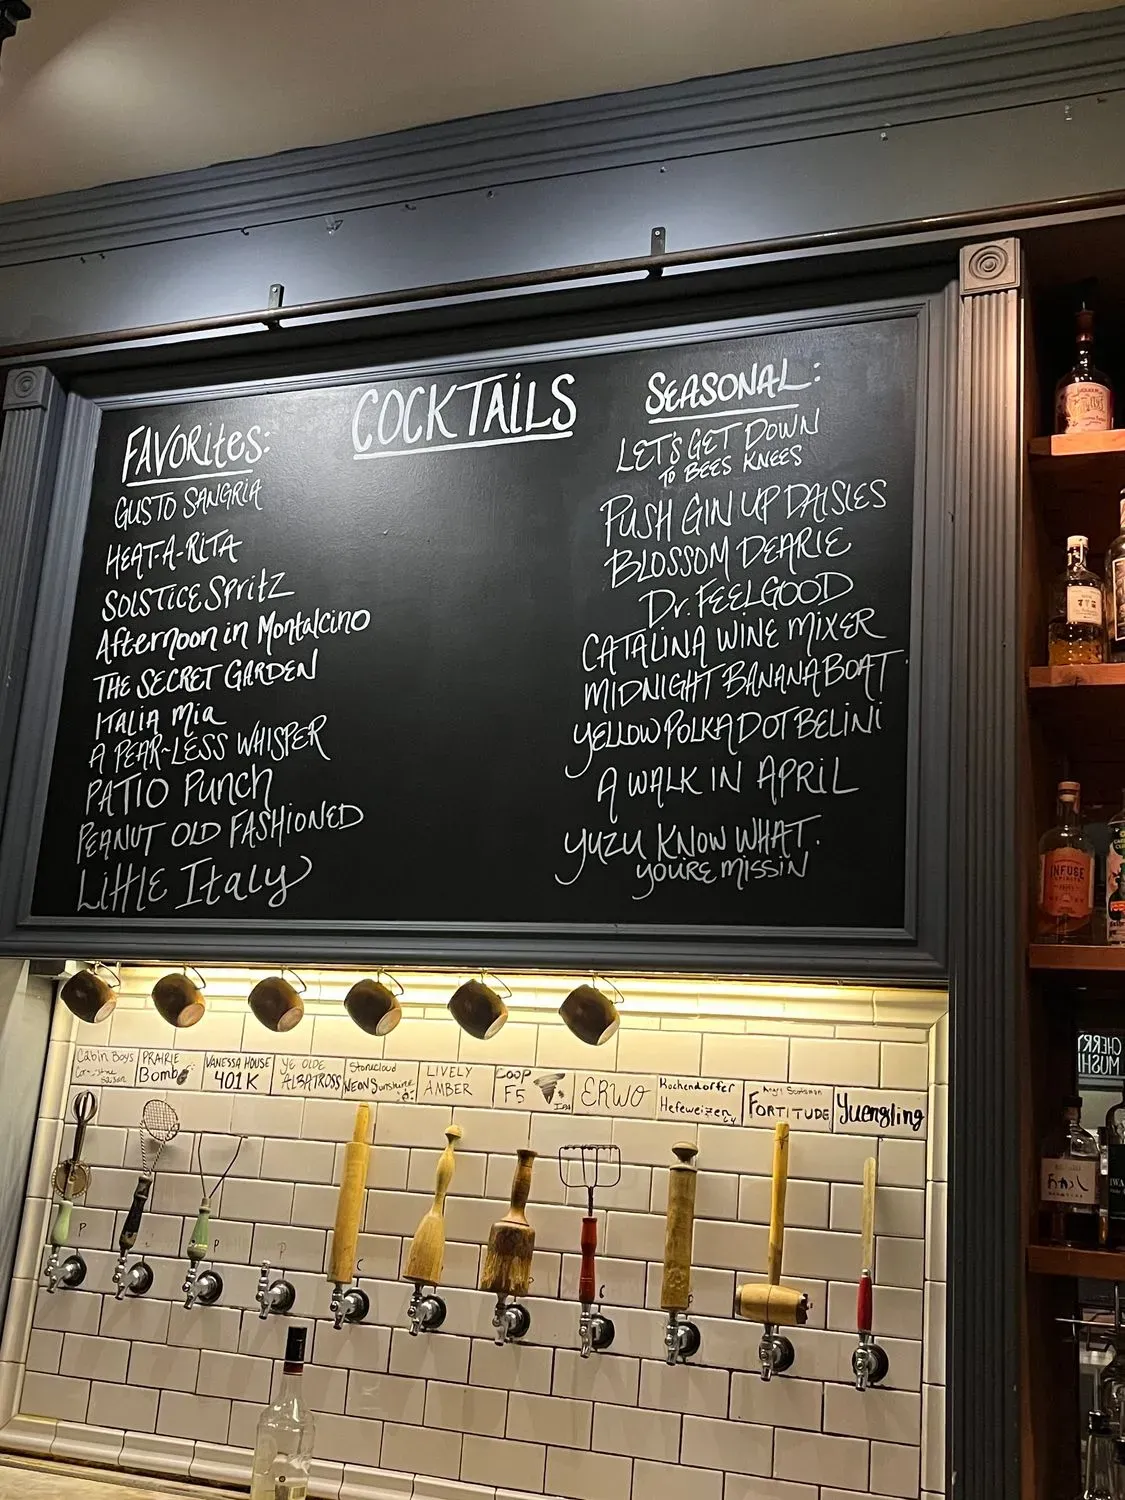 COCKTAILS
FAVORITES:
GUSTO SANGRIA
HEAT-A-RITA
SOLSTICE SPRITZ
Afternoon in Montalcino
THE SECRET GARDEN
ITALIA Mia
A PEAR-LESS WHISPER
PATIO PUNCH
PEANUT OLD FASHIONED
Little Italy
SEASONAL:
LET'S GET DOWN
TO BEES KNEES
PUSH GIN UP DAISIES
BLOSSOM DEARIE
Dr. FEELGOOD
CATALINA WINE MIXER
MIDNIGHT BANANA BOAT
YELLOW POLKA DOT BELINI
A WALK IN APRIL
YUZU KNOW WHAT.
YOU'RE MISSIN
Cabin Boys
saison
PRAIRIE
Bomb
VANESSA HOUSE
401K
YE OLDE
ALBATROSS
Stonecloud
NEON Sunshine
LIVELY
AMBER
COOP
F5
IPA
ERWO
Kochendorffer
Hefeweizen
Angry Scotsman
FORTITUDE
Yuengling
P
P
P
C
P
C
C
INFUSE
SPIRITS
CHERRY
MUSHI